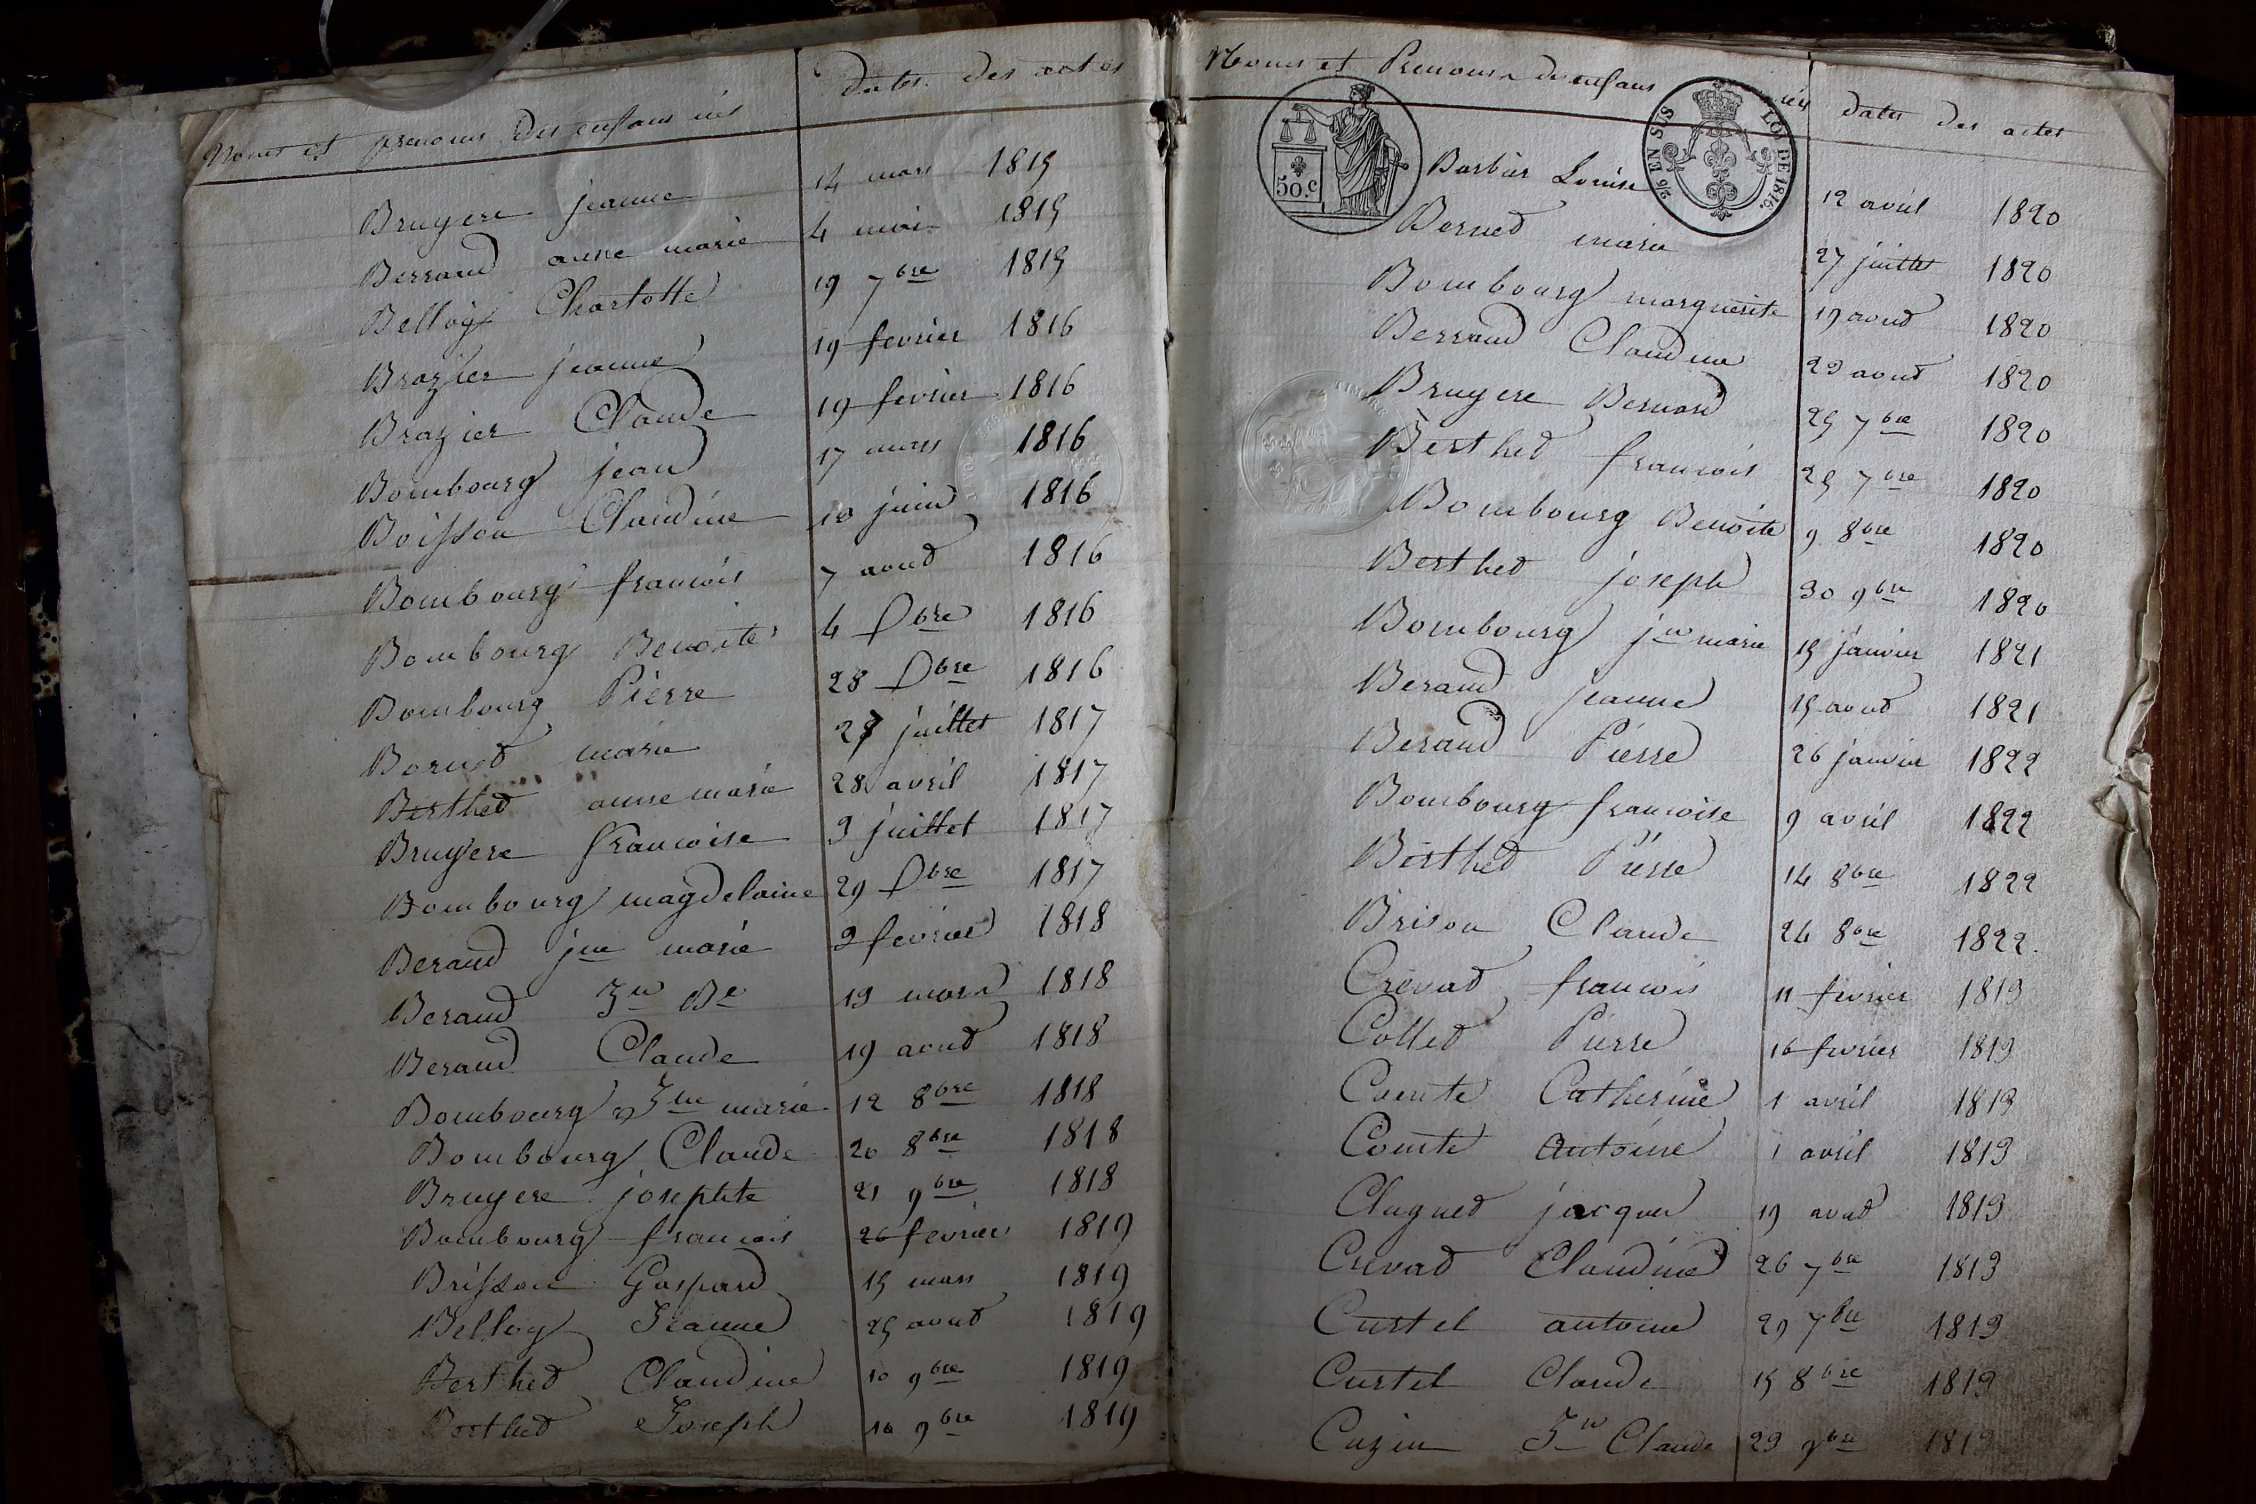 Noms et prenoms des enfans nés dates des actes
Bruyere jeanne 14 mars 1815
Berraud anne marie 4 mai 1815
Belloy Charlotte 19 7bre 1815
Brazier jeanne 19 fevrier 1816
Brazier Claude 19 fevrier 1816
Bombourg jean 17 mars 1816
Boisson Claudine 10 juin 1816
Bombourg francois 7 aout 1816
Bombourg Benoite 4 Dbre 1816
Bombourg Pierre 28 Dbre 1816
Bornet marie 27 juillet 1817
Berthet anne marie 28 avril 1817
Bruyere francoise 3 juillet 1817
Bombourg magdelaine 29 Dbre 1817
Beraud jne marie 2 fevrier 1818
Beraud Jn Be 19 mars 1818
Beraud Claude 19 aout 1818
Bombourg Jne marie 12 8bre 1818
Bombourg Claude 20 8bre 1818
Bruyere josephte 21 9bre 1818
Bombourg francois 26 fevrier 1819
Brisson Gaspard 15 mars 1819
Belloy Jeanne 25 aout 1819
Berthet Claudine 10 9bre 1819
Berthet Joseph 10 9bre 1819
Noms et Prenoms des enfans nés dates des actes
50.c
2/6 EN SUS LOI DE 1816.
Barbier Louise 12 avril 1820
Bernet marie 27 juillet 1820
Bombourg marguerite 19 aout 1820
Berraud Claudine 29 aout 1820
Bruyere Bernard 25 7bre 1820
Berthet francois 25 7bre 1820
Bombourg Benoite 9 8bre 1820
Berthet joseph 30 9bre 1820
Bombourg jn marie 15 janvier 1821
Beraud jeanne 15 aout 1821
Beraud Pierre 26 janvier 1822
Bombourg francoise 9 avril 1822
Berthet Pierre 14 8bre 1822
Brison Claude 24 8bre 1822.
Crevat francois 11 fevrier 1813
Collet Pierre 16 fevrier 1813
Comte Catherine 1 avril 1813
Comte antoine 1 avril 1813
Clugnet jacques 19 aout 1813
Crevat Claudine 26 7bre 1813
Custel antoine 29 7bre 1813
Custel Claude 15 8bre 1813
Cuzin Jn Claude 29 9bre 1813